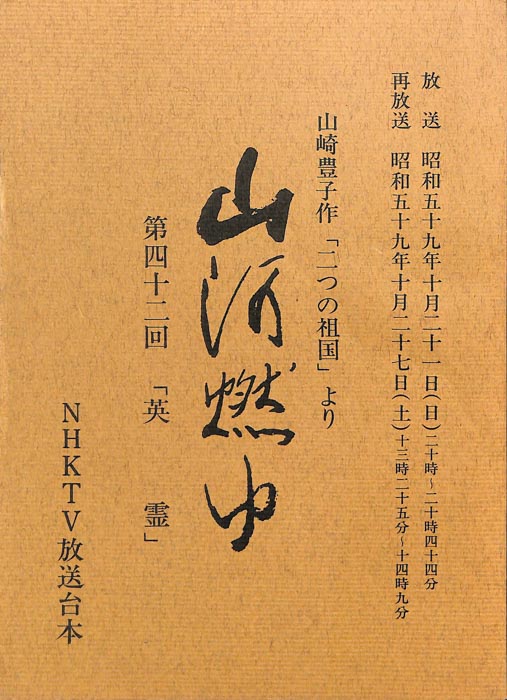 放送 昭和五十九年十月二十一日(日)二十時~二十時四十四分
再放送 昭和五十九年十月二十七日(土)十三時二十五分~十四時九分
山崎豊子作「二つの祖国」より
山河燃ゆ
第四十二回 「英霊」
NHKTV放送台本